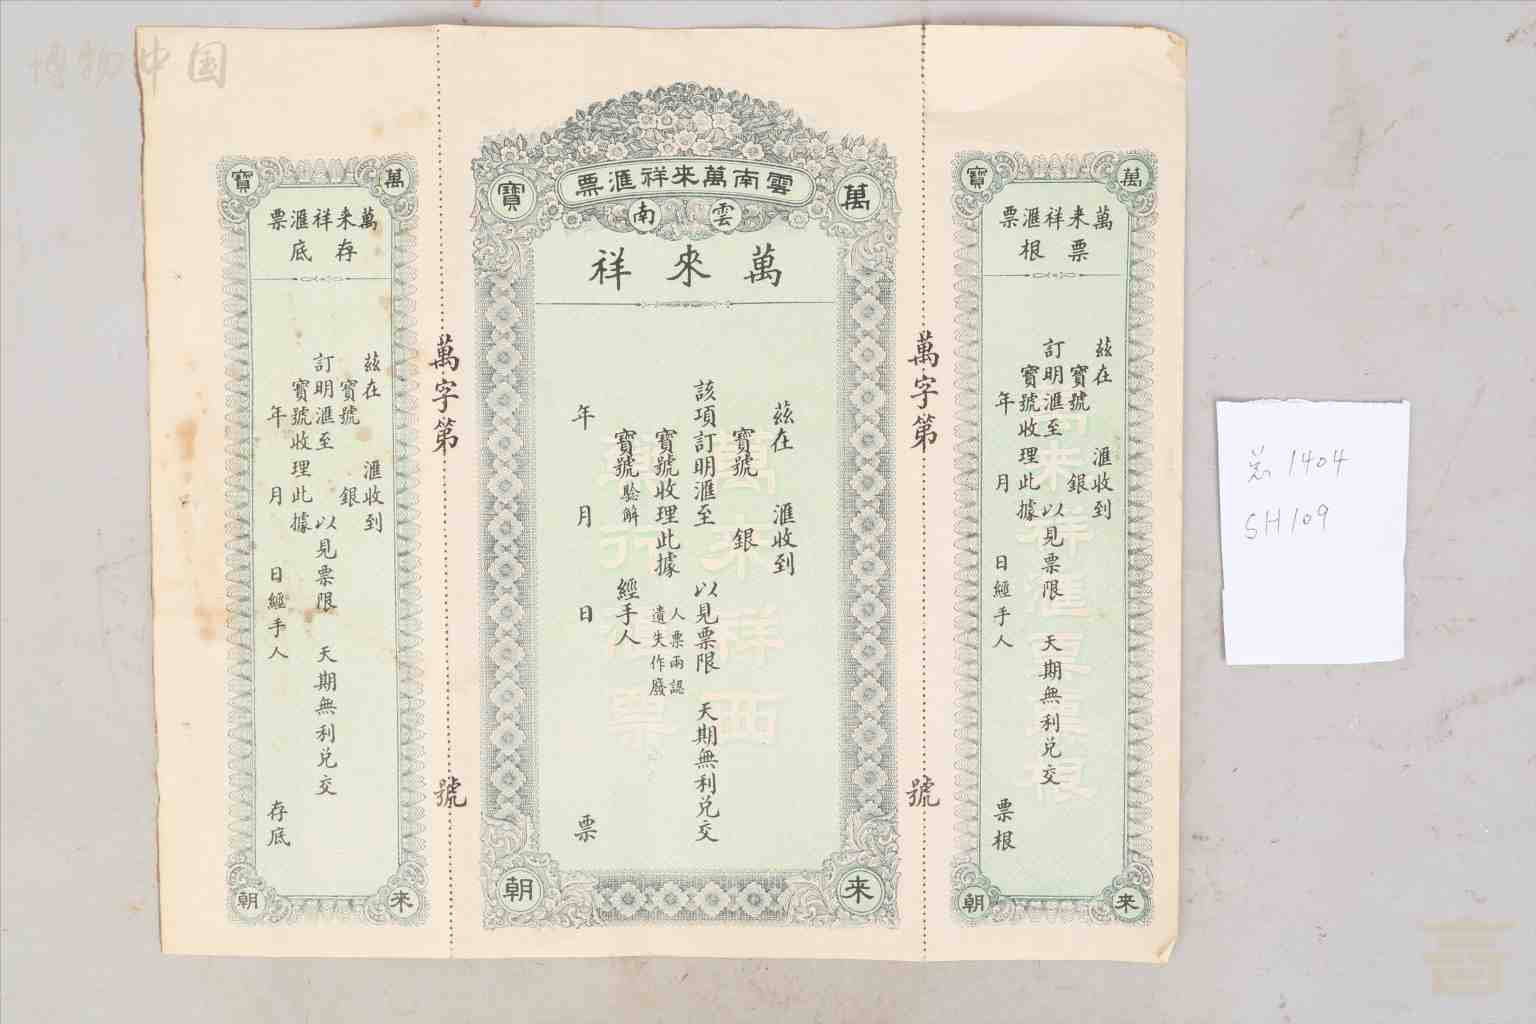 博物中国
萬
寶
萬來祥滙票
票根
茲在 滙收到
寶號 銀
訂明滙至 以見票限 天期無利兌交
寶號收理此據
年 月 日經手人 票根
來
朝
萬字第 號
雲南萬來祥滙票
萬
寶
雲南
萬來祥
茲在 滙收到
寶號 銀
該項訂明滙至 以見票限 天期無利兌交
寶號收理此據 人票兩認
遺失作廢
寶號驗解 經手人
年 月 日 票
萬來祥西
票
來
朝
萬字第 號
萬
寶
萬來祥滙票
存底
茲在 滙收到
寶號 銀
訂明滙至 以見票限 天期無利兌交
寶號收理此據
年 月 日經手人 存底
來
朝
1404
SH109